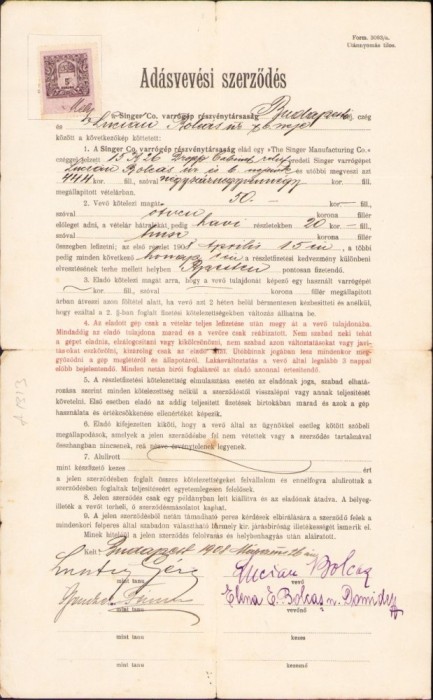 Form. 3065/a.
Utánnyomás tilos.
Adásvevési szerződés
a Singer Co. varrógép részvénytársaság Budapest czég
és Lucian Bolcas úr és neje
között a következőkép köttetett:
1. A Singer Co. varrógép részvénytársaság elad egy «The Singer Manufacturing Co.»
czéggel jelzett 15 K 26 eredeti Singer varrógépet
Lucian Bolcas úr és és utóbbi megveszi azt
444 kor. fill., szóval négyszáznegyvennégy kor. fill.
megállapított vételárban.
2. Vevő kötelezi magát 50.–
szóval ötven korona fillér
előleget adni, a vételár hátralékát pedig havi részletekben 20 kor. – fill.
szóval húsz korona fillér
összegben lefizetni; az első részlet 1908 április 15-én, a többi
pedig minden következő hónap én a részletfizetési kedvezmény különbeni
elvesztésének terhe mellett helyben pontosan fizetendő.
3. Eladó kötelezi magát arra, hogy a vevő tulajdonát képező egy használt varrógépet
kor. fill., szóval korona fillér megállapított
árban átveszi azon föltétel alatt, ha vevő azt 2 héten belül bérmentesen kézbesíteti és anélkül,
hogy ezáltal a 2. §-ban foglalt fizetési kötelezettségekben változás állhatna be.
4. Az eladott gép csak a vételár teljes lefizetése után megy át a vevő tulajdonába.
Mindaddig az eladó tulajdona marad és a vevőre csak reábizatott. Nem szabad neki tehát
a gépet eladnia, elzálogosítani vagy kikölcsönözni, nem szabad azon változtatásokat vagy javí-
tásokat eszközölni, kiszárolag csak az eladó által. Utóbbinak jogában lesz mindenkor meg-
győződni a gép meglétéről és állapotáról. Lakásváltoztatás a vevő által legalább 3 nappal
előbb bejelentendő. Minden netán bírói foglalásról az eladó azonnal értesítendő.
5. A részletfizetési kötelezettség elmulasztása esetén az eladónak joga, szabad elhatá-
rozása szerint minden kötelezettség nélkül a szerződéstől visszalépni vagy annak teljesítését
követelni. Első esetben eladó az addig teljesített fizetések birtokában marad és azok a gép
használata és értékcsökkenése ellenértékét képezik.
6. Eladó kifejezetten kiköti, hogy a vevő által az ügynökkel esetleg kötött szóbeli
megállapodások, amelyek a jelen szerződésbe fel nem vétettek vagy a szerződés tartalmával
összhangban nincsenek, rá nézve érvénytelenek legyenek.
7. Alulírott
mint készfizető kezes ért
a jelen szerződésben foglalt összes kötelezettségeket felvállalom és ennélfogva alulírottak a
szerződésben foglaltak teljesítéséért egyetemlegesen felelősek.
8. Jelen szerződés csak egy példányban lett kiállítva és az eladónak átadva. A bélyeg-
illeték a vevőt terheli, ő szerződésmásolatot kaphat.
9. A jelen szerződésből netán támadható peres kérdések elbírálására a szerződő felek
mindenkori felperes által szabadon választható bármely kir. járásbíróság illetékességét ismerik el.
Minek köteléül a jelen szerződés felolvasás és helybenhagyás után aláíratott.
Kelt Budapest 1908
mint tanu
mint tanu
mint tanu
Lucian Bolcaș
vevő
Elena E. Bolcas n. Domide
vevőnő
kezes
kezesnő